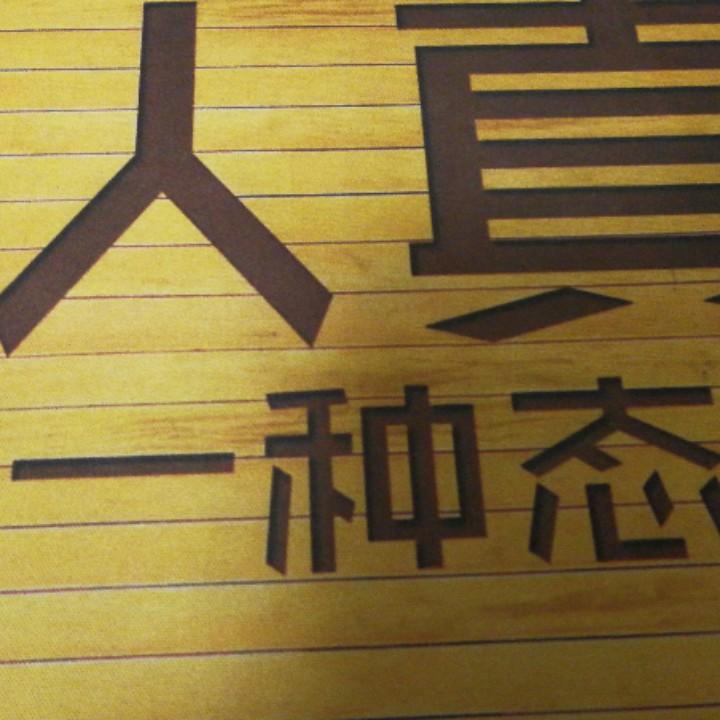 人真
一种态